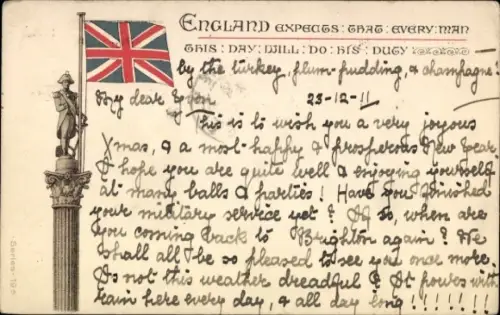 ENGLAND EXPECTS : THAT : EVERY : MAN
THIS : DAY : WILL : DO : HIS : DUTY
by the turkey, plum-pudding, & champagne!
My dear 23-12-11
This is to wish you a very joyous
Xmas, & a most happy & prosperous New Year.
I hope you are quite well & enjoying yourself
at many balls & parties! Have you finished
your military service yet? If so, when are
you coming back to Brighton again? We
shall all be so pleased to see you once more.
Is not this weather dreadful? It pours with
rain here every day, & all day long!!!!!!!
Series 195